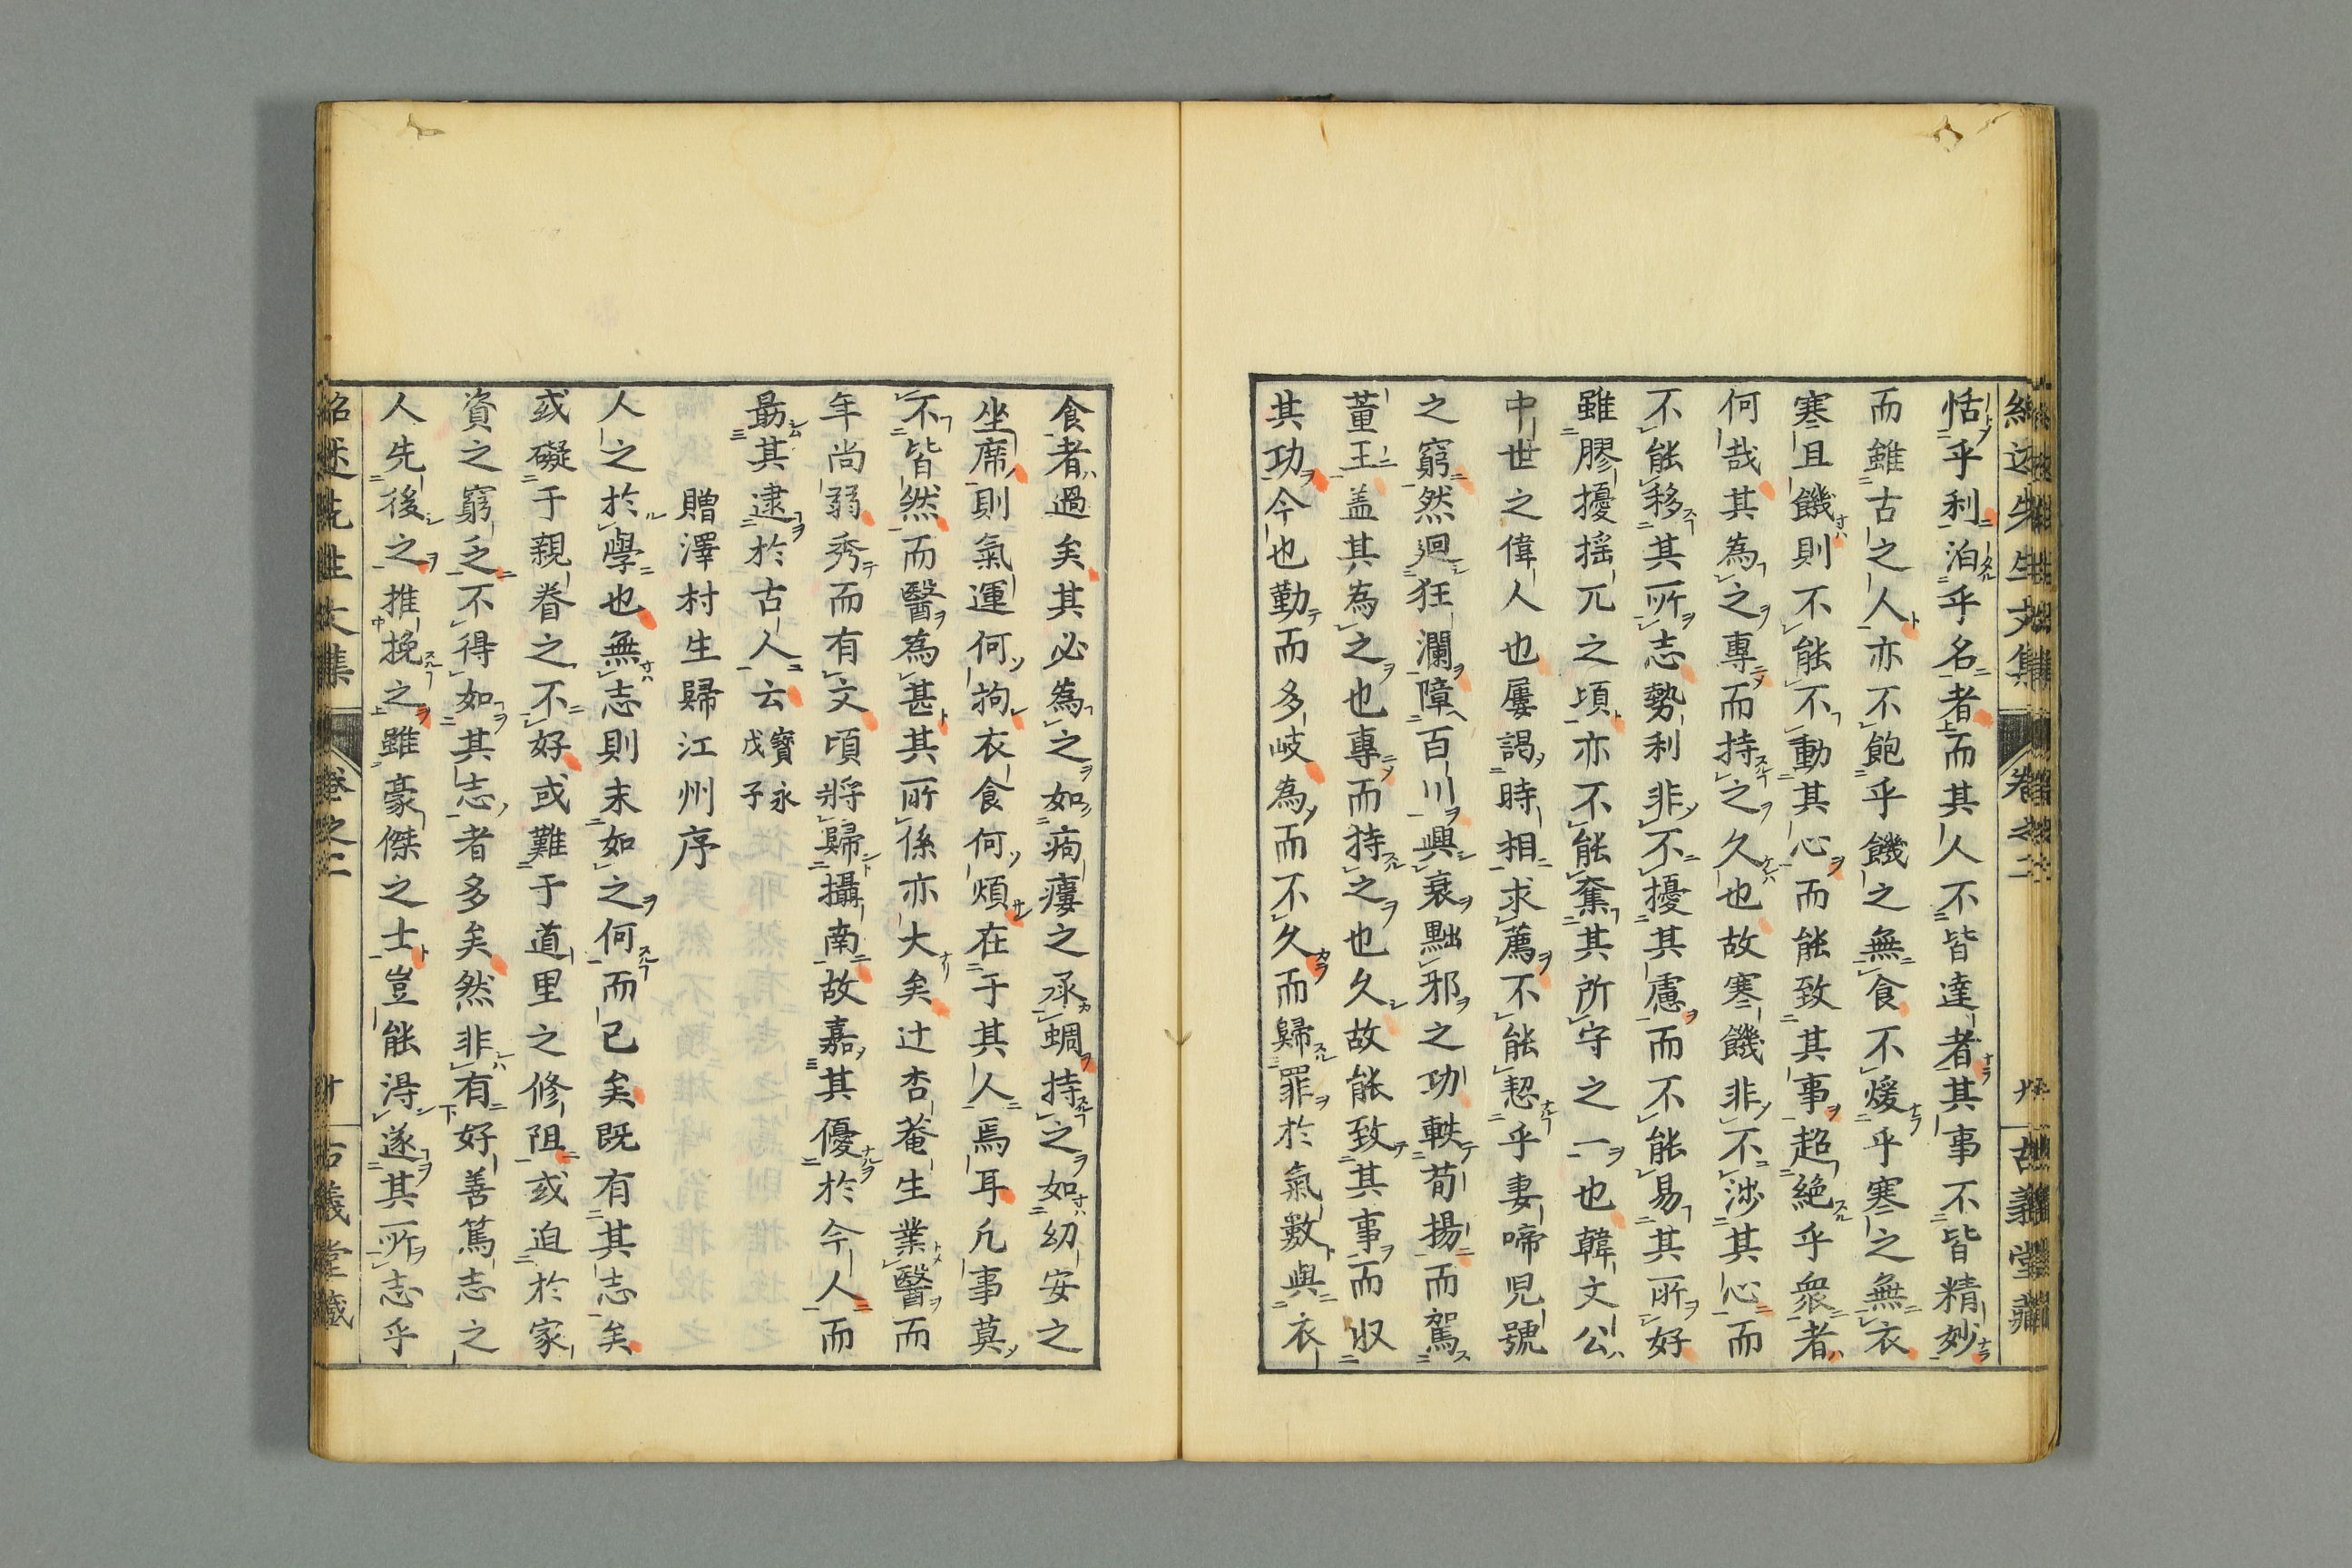 恬乎利泊乎名者而其人不皆達者其事不皆精妙
而雖古之人亦不飽乎饑之無食不煖乎寒之無衣
寒且饑則不能不動其心而能致其事超絶乎衆者
何哉其為之專而持之久也故寒饑非不渉其心而
不能移其所志勢利非不擾其慮而不能易其所好
雖膠擾揺兀之頃亦不能奪其所守之一也韓文公
中世之偉人也屢謁時相求薦不能恝乎妻啼児號
之窮然迴狂瀾障百川興衰黜邪之功軼荀揚而駕
董王盖其為之也專而持之也久故能致其事而収
其功今也勤而多岐為而不久而歸罪於氣數與衣
食者過矣其必為之如痀瘻之承蜩持之如幼安之
坐席則氣運何拘衣食何煩在于其人焉耳凡事莫
不皆然而醫為甚其所係亦大矣辻杏菴生業醫而
年尚弱秀而有文頃將歸攝南故嘉其優於今人而
勗其逮於古人云寳永戊子
贈澤村生歸江州序
人之於學也無志則末如之何而已矣既有其志矣
或礙于親眷之不好或難于道里之修阻或迫於家
資之窮乏不得如其志者多矣然非有好善篤志之
人先後之推挽之雖豪傑之士豈能得遂其所志乎
紹述先生文集
卷之二
十
古義堂藏